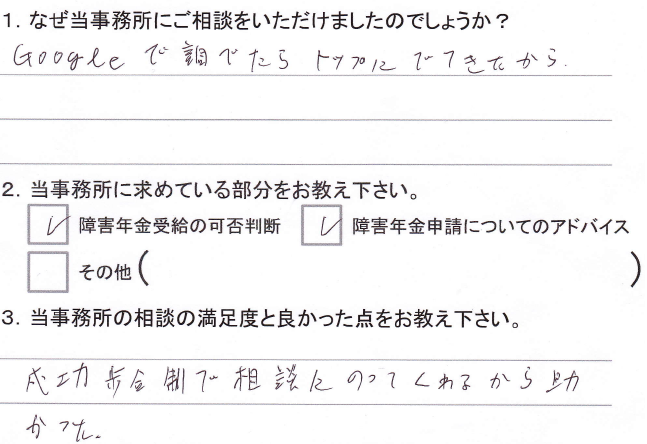 1. なぜ当事務所にご相談をいただけましたのでしょうか？
Googleで調べたらトップにでてきたから.
2. 当事務所に求めている部分をお教え下さい。
障害年金受給の可否判断 障害年金申請についてのアドバイス
その他( )
3. 当事務所の相談の満足度と良かった点をお教え下さい。
成功歩合制で相談にのってくれるから助
かった。